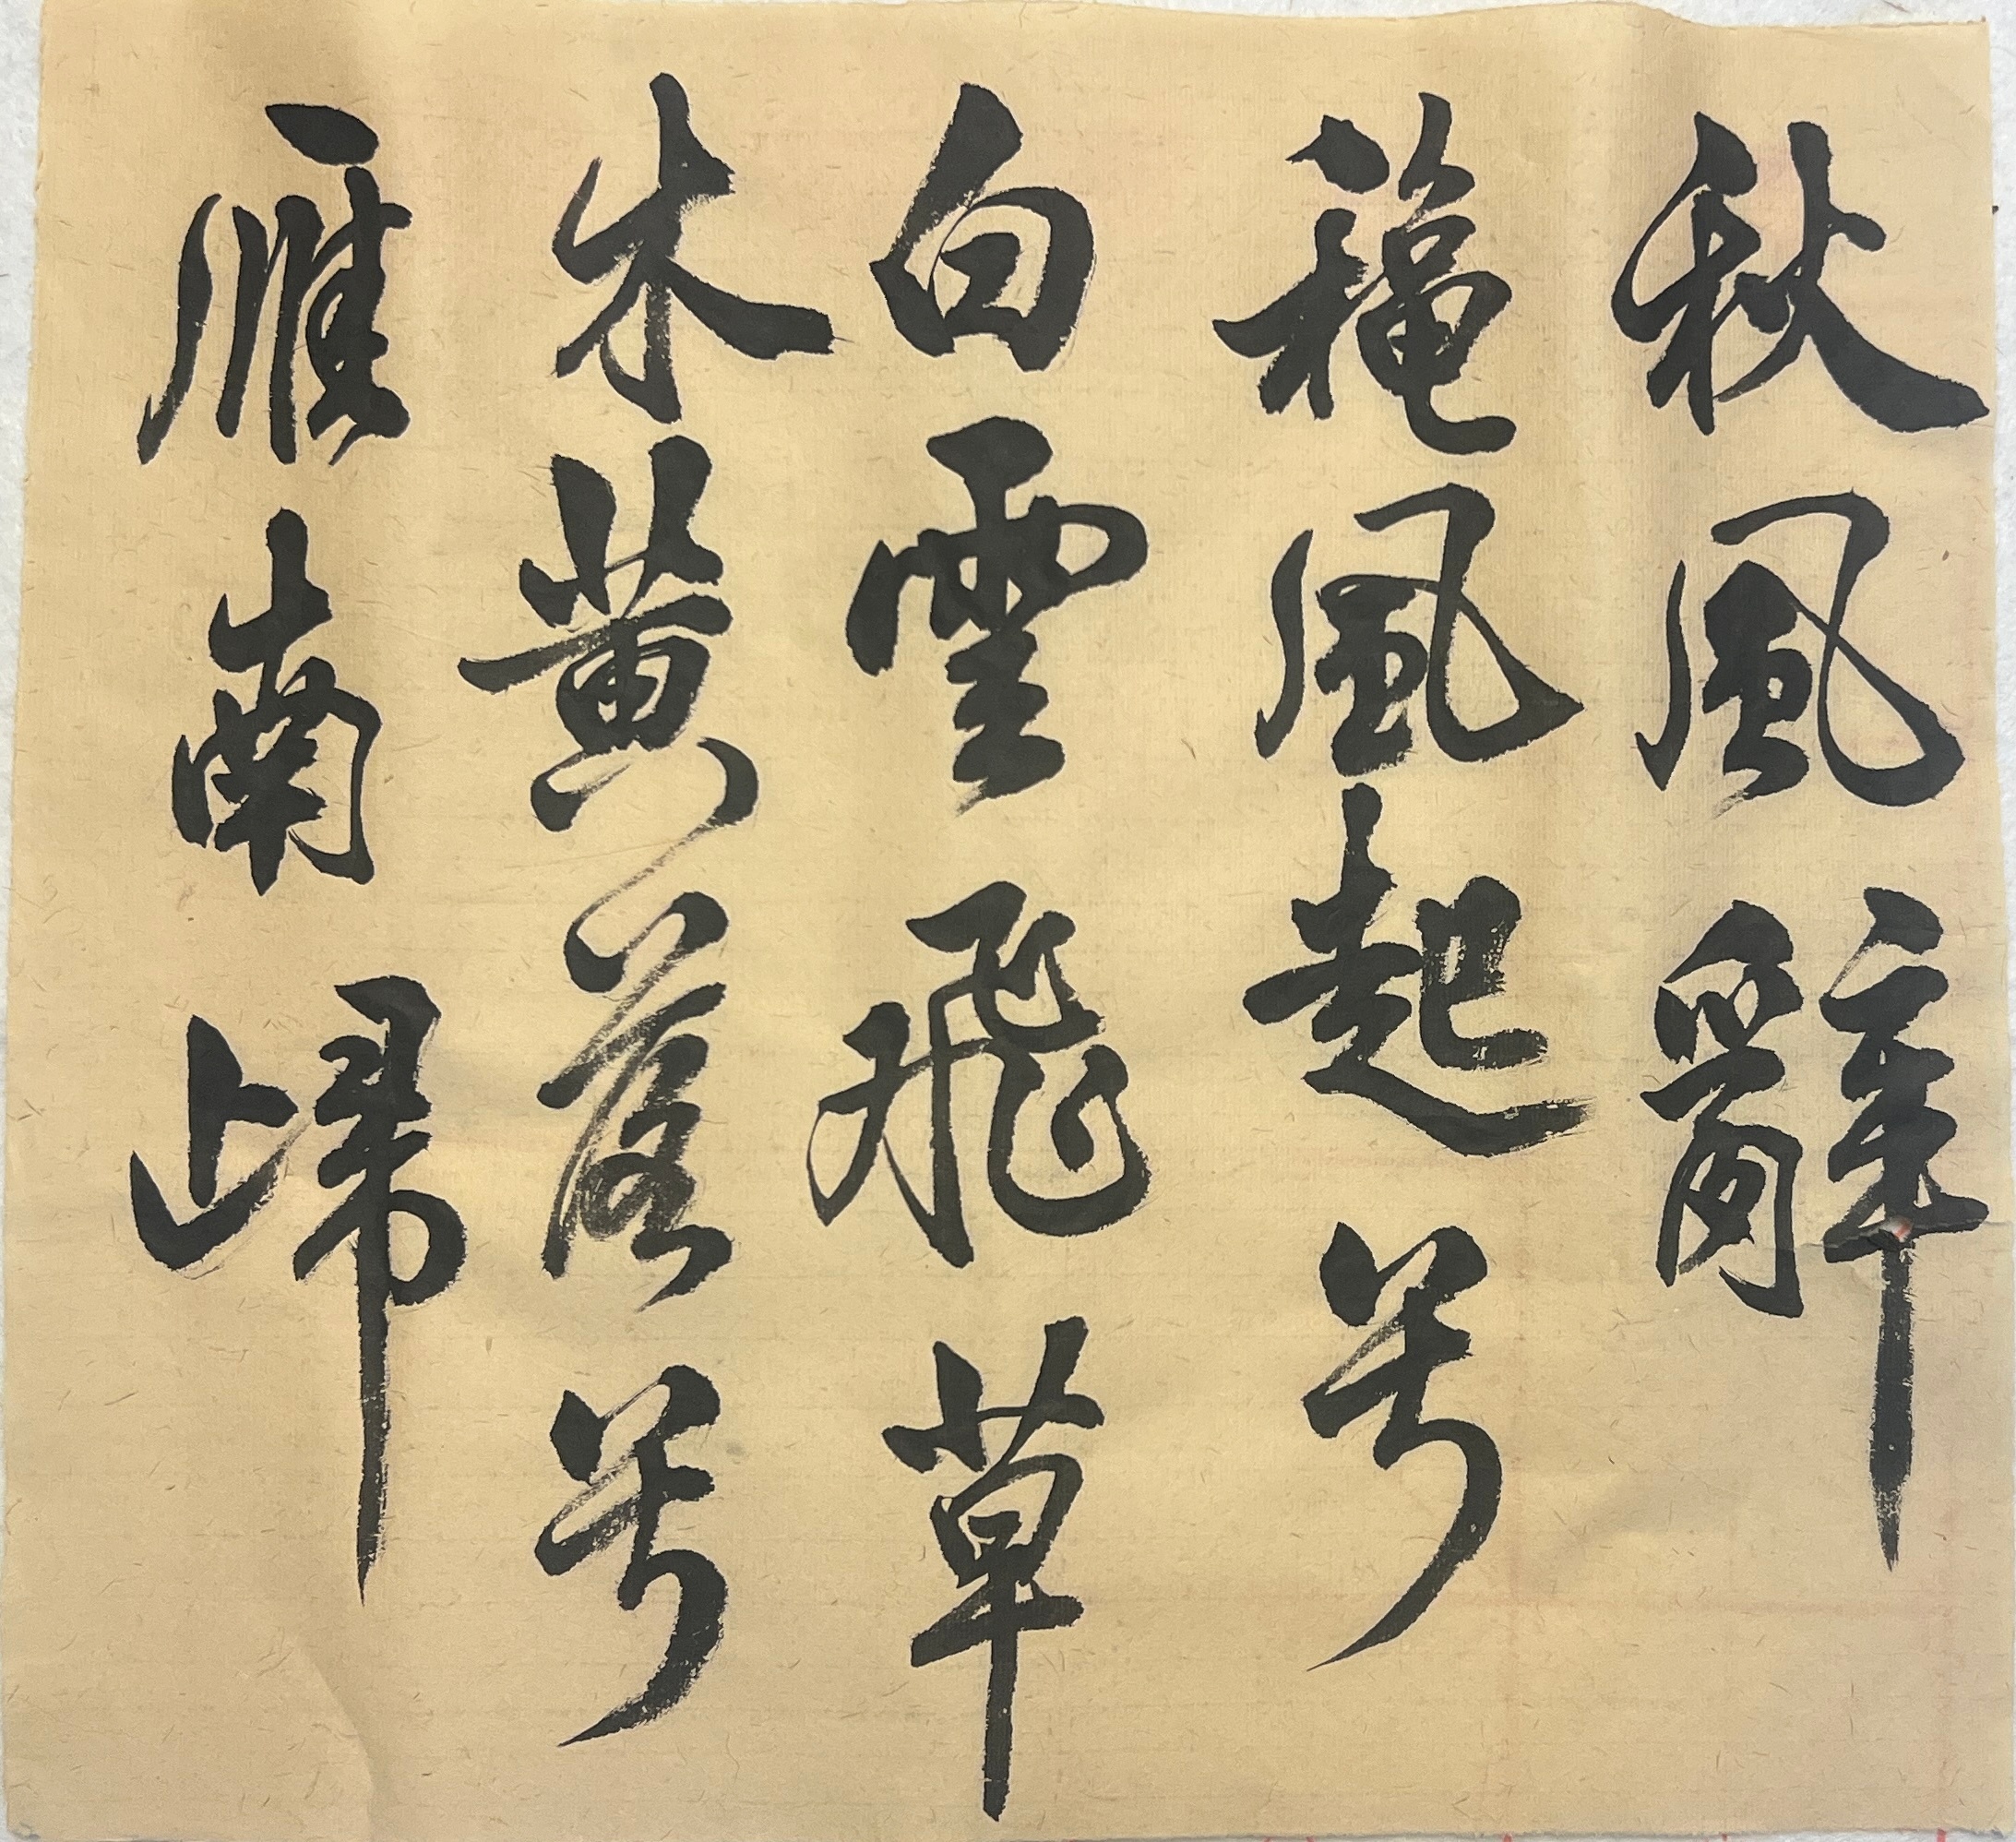 秋風辭
龝風起兮
白雲飛草
木黄落兮
雁南歸